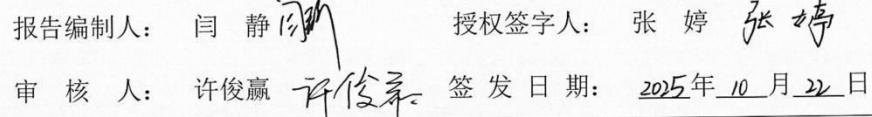 报告编制人： 闫 静 闫静 授权签字人： 张 婷 张婷
审 核 人： 许俊赢 许俊赢 签 发 日 期： 2025年 10 月 22 日